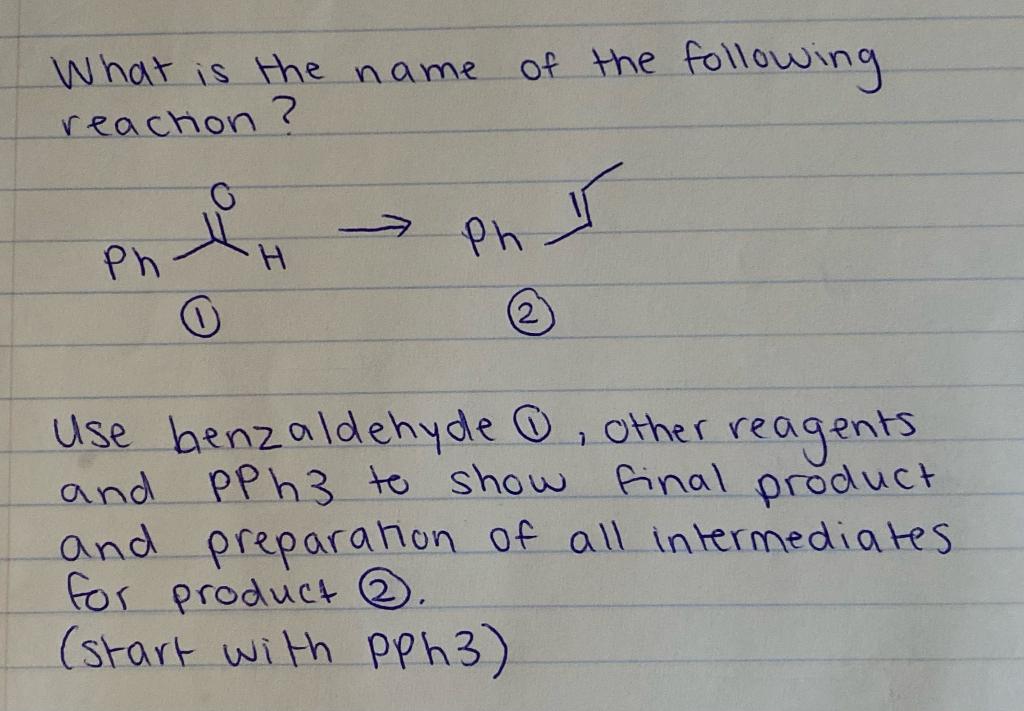 What is the name of the following
reaction?
O
Ph H → Ph
① ②
Use benzaldehyde ①, other reagents
and PPh3 to show final product
and preparation of all intermediates
for product ②.
(start with pph3)